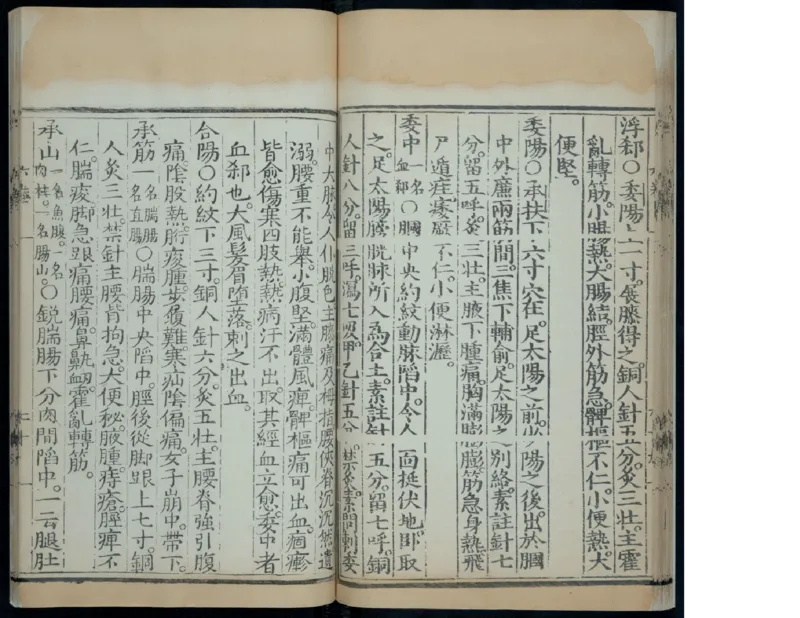 浮郄○委陽上一寸。展膝得之。銅人針五分。灸三壯。主霍
亂轉筋。小腸熱。大腸結。脛外筋急。髀樞不仁。小便熱。大
便堅。
委陽○承扶下六寸。穴在足太陽之前。少陽之後。出於膕
中外廉兩筋間。三焦下輔俞。足太陽之別絡。素註針七
分。留五呼。灸三壯。主腋下腫痛。胸滿膨膨。筋急身熱。飛
尸遁疰。痿厥不仁。小便淋瀝。
委中一名血郄○膕中央約紋動脉陷中。令人面挺伏地臥取
之。足太陽膀胱脉所入為合土。素註針五分。留七呼。銅
人針八分。留三呼。瀉七吸。甲乙針五分。禁灸。素問刺委
中大脉。令人仆脫色。主膝痛及拇指。腰俠脊沉沉然。遺
溺。腰重不能舉。小腹堅滿。體風痺。髀樞痛。可出血。痼疹
皆愈。傷寒四肢熱。熱病汗不出。取其經血立愈。委中者
血郄也。大風髮眉墮落。刺之出血。
合陽○約紋下三寸。銅人針六分。灸五壯。主腰脊強引腹
痛。陰股熱。胻痠腫。步履難。寒疝陰偏痛。女子崩中。帶下。
承筋一名腨腸一名直腸○腨腸中央陷中。脛後從脚跟上七寸。銅
人灸三壯。禁針。主腰背拘急。大便秘。腋腫。痔瘡。脛痺不
仁。腨痠。脚急跟痛。腰痛。鼻鼽衂。霍亂轉筋。
承山一名魚腹。一名肉柱。一名腸山。○銳腨腸下分肉間陷中。一云腿肚